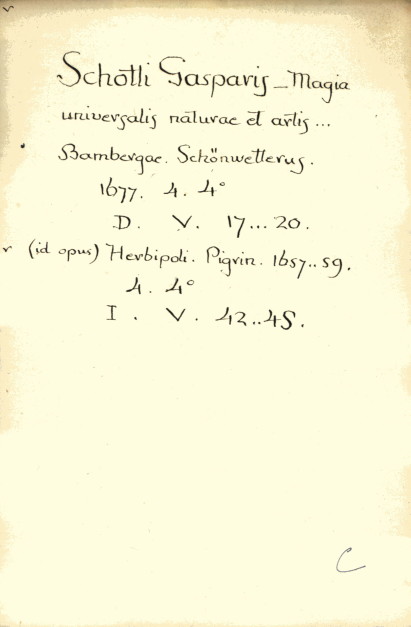 v
Schotti Gasparis _ Magia
universalis naturae et artis ...
Bambergae. Schönwetterus.
1677. 4. 4°
D. V. 17...20.
v (id opus) Herbipoli. Pigrin. 1657..59.
4. 4°
I. V. 42..45.
C